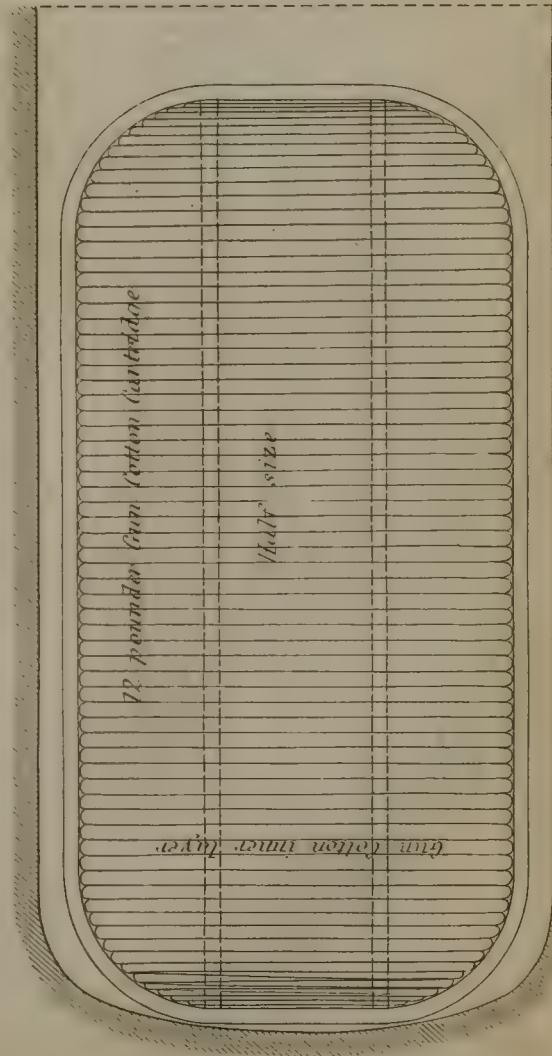 12 pounder Gun Cotton Cartridge
Half size
Gun Cotton inner layer